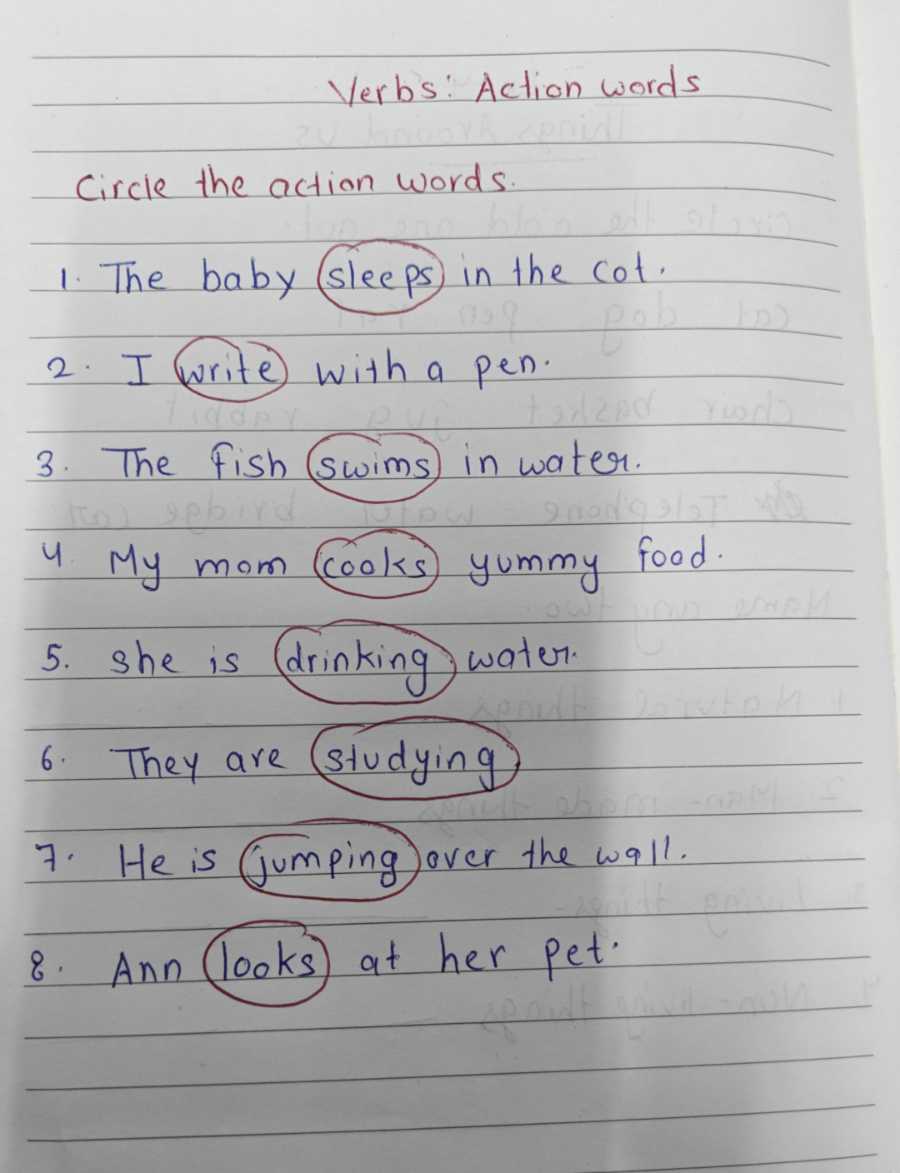 Verbs: Action words
Circle the action words.
1. The baby sleeps in the cot.
2. I write with a pen.
3. The fish swims in water.
4. My mom cooks yummy food.
5. She is drinking water.
6. They are studying
7. He is jumping over the wall.
8. Ann looks at her pet.